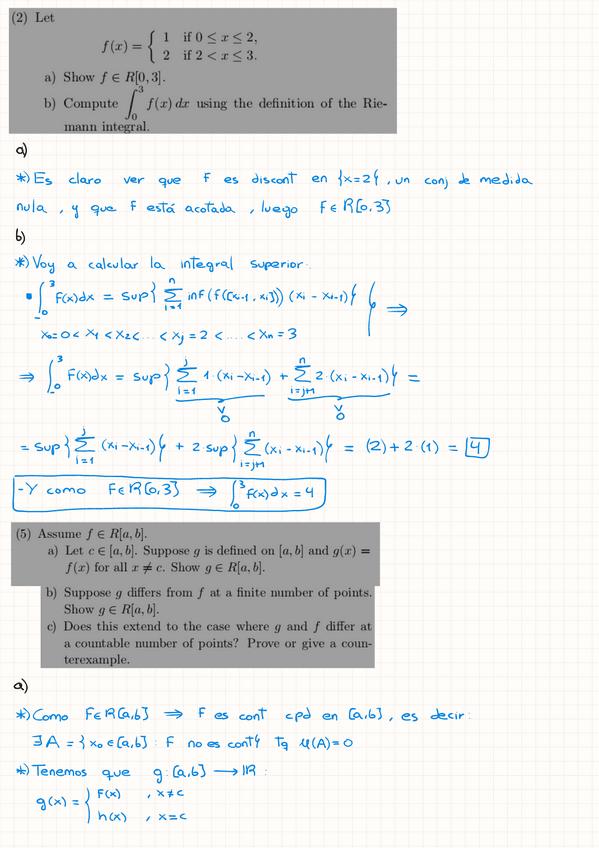 (2) Let
f(x) = { 1 if 0 ≤ x ≤ 2,
2 if 2 < x ≤ 3.
a) Show f ∈ R[0, 3].
b) Compute ∫₀³ f(x) dx using the definition of the Rie-
mann integral.
a)
*) Es claro ver que f es discont en {x=2}, un conj de medida
nula, y que f está acotada, luego f ∈ R[0,3]
b)
*) Voy a calcular la integral superior.
▪ ∫₀³ f(x)dx = sup{ Σᵢ₌₁ⁿ inf(f([xᵢ₋₁, xᵢ])) (xᵢ - xᵢ₋₁) } } ⇒
x₀=0 < x₁ < x₂ < ... < xⱼ = 2 < .... < xₙ = 3
⇒ ∫₀³ f(x)dx = sup{ Σᵢ₌₁ʲ 1·(xᵢ - xᵢ₋₁) + Σᵢ₌ⱼ₊₁ⁿ 2·(xᵢ - xᵢ₋₁) } =
v 0 v 0
= sup{ Σᵢ₌₁ʲ (xᵢ - xᵢ₋₁) } + 2·sup{ Σᵢ₌ⱼ₊₁ⁿ (xᵢ - xᵢ₋₁) } = (2) + 2·(1) = 4
- Y como f ∈ R[0,3] ⇒ ∫₀³ f(x)dx = 4
(5) Assume f ∈ R[a, b].
a) Let c ∈ [a, b]. Suppose g is defined on [a, b] and g(x) =
f(x) for all x ≠ c. Show g ∈ R[a, b].
b) Suppose g differs from f at a finite number of points.
Show g ∈ R[a, b].
c) Does this extend to the case where g and f differ at
a countable number of points? Prove or give a coun-
terexample.
a)
*) Como f ∈ R[a,b] ⇒ f es cont cpd en [a,b], es decir:
∃A = {x₀ ∈ [a,b] : f no es cont} tq μ(A)=0
*) Tenemos que g: [a,b] → ℝ :
g(x) = { f(x) , x≠c
h(x) , x=c